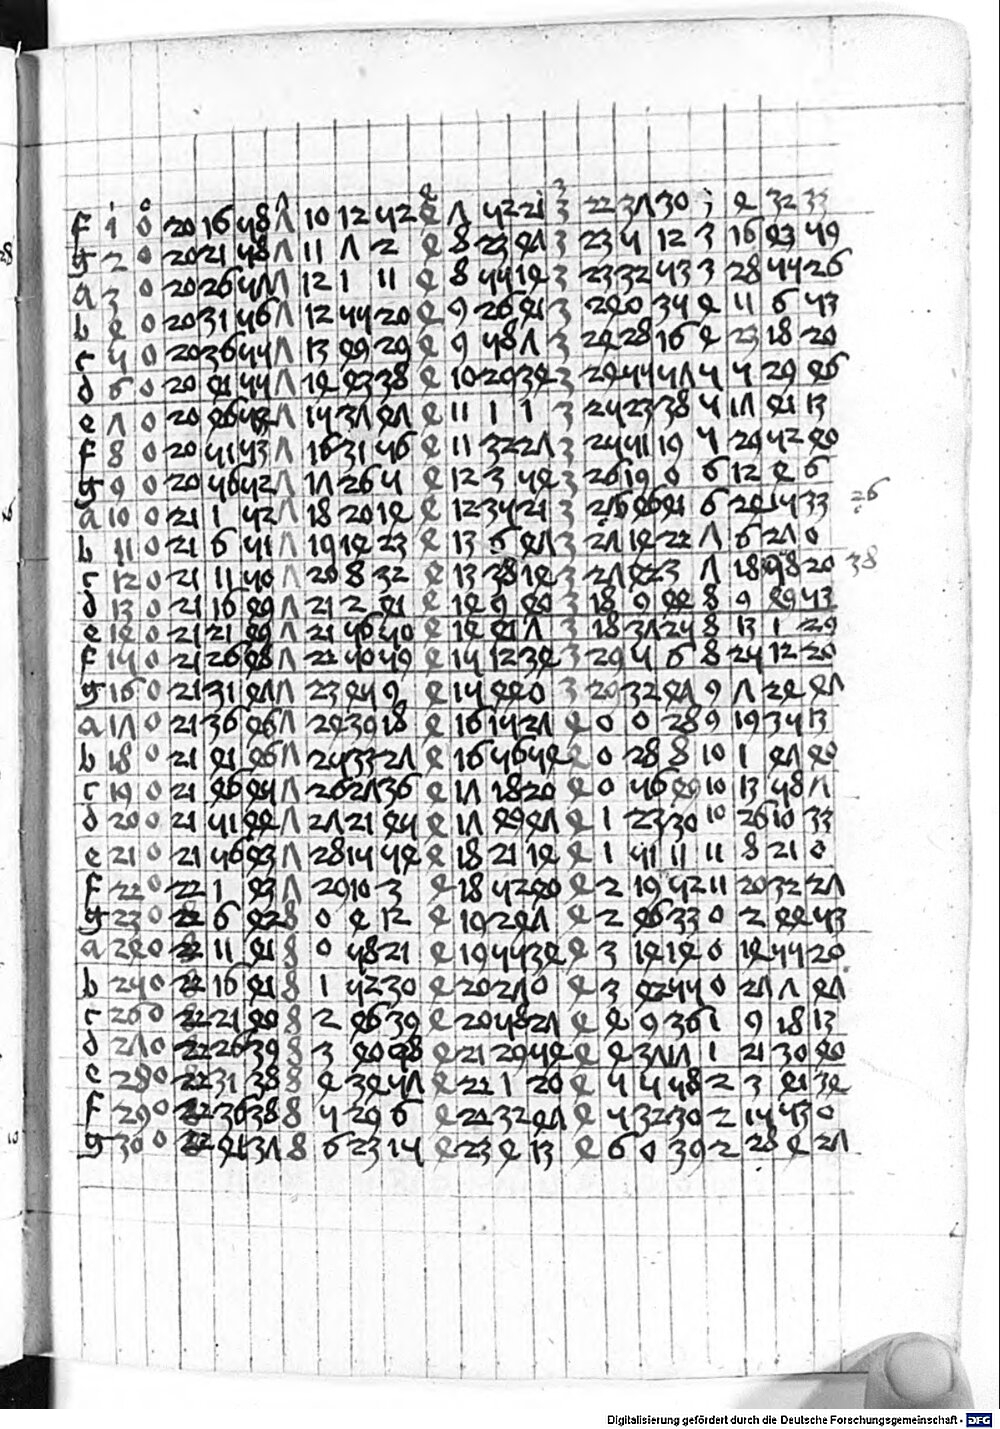 f 1 0 20 16 58 7 10 12 52 4 7 52 21 3 22 37 30 3 4 32 33
g 2 0 20 21 58 7 11 7 2 4 8 23 47 3 23 5 12 3 16 43 59
a 3 0 20 26 57 7 12 1 11 4 8 55 14 3 23 32 53 3 28 55 26
b 4 0 20 31 56 7 12 55 20 4 9 26 41 3 24 0 35 4 11 6 53
c 5 0 20 36 55 7 13 49 29 4 9 58 7 3 24 28 16 4 23 18 20
d 6 0 20 41 55 7 14 43 38 4 10 29 34 3 24 55 57 5 5 29 46
e 7 0 20 46 53 7 15 37 47 4 11 1 1 3 25 23 38 5 17 41 13
f 8 0 20 51 53 7 16 31 56 4 11 32 27 3 25 51 19 5 29 52 40
g 9 0 20 56 52 7 17 26 5 4 12 3 54 3 26 19 0 6 12 4 6
a 10 0 21 1 52 7 18 20 14 4 12 35 21 3 26 46 41 6 24 15 33 26
b 11 0 21 6 51 7 19 14 23 4 13 6 47 3 27 14 22 7 6 27 0
c 12 0 21 11 50 7 20 8 32 4 13 38 14 3 27 42 3 7 18 38 20 38
d 13 0 21 16 49 7 21 2 41 4 14 9 40 3 18 9 44 8 9 49 53
e 14 0 21 21 49 7 21 56 50 4 14 41 7 3 18 37 25 8 13 1 29
f 15 0 21 26 48 7 22 50 59 4 15 12 34 3 29 5 6 8 25 12 20
g 16 0 21 31 47 7 23 45 9 4 15 44 0 3 20 32 47 9 7 24 47
a 17 0 21 36 46 7 24 39 18 4 16 15 27 4 0 0 28 9 19 35 13
b 18 0 21 41 46 7 25 33 27 4 16 56 54 4 0 28 8 10 1 47 40
c 19 0 21 46 45 7 26 27 36 4 17 18 20 4 0 56 49 10 13 58 7
d 20 0 21 51 44 7 27 21 45 4 17 49 47 4 1 23 30 10 26 10 33
e 21 0 21 56 43 7 28 15 54 4 18 21 14 4 1 51 11 11 8 21 0
f 22 0 22 1 43 7 29 10 3 4 18 52 40 4 2 19 52 11 20 32 27
g 23 0 22 6 42 8 0 4 12 4 19 24 7 4 2 46 33 0 2 44 53
a 24 0 22 11 41 8 0 58 21 4 19 55 34 4 3 14 14 0 14 55 20
b 25 0 22 16 41 8 1 52 30 4 20 27 0 4 3 42 55 0 27 7 47
c 26 0 22 21 40 8 2 46 39 4 20 58 27 4 4 9 36 1 9 18 13
d 27 0 22 26 39 8 3 40 48 4 21 29 54 4 4 37 17 1 21 30 40
e 28 0 22 31 38 8 4 34 57 4 22 1 20 4 5 5 58 2 3 41 34
f 29 0 22 36 38 8 5 29 6 4 22 32 47 4 5 32 30 2 15 53 0
g 30 0 22 41 37 8 6 23 15 4 23 4 13 4 6 0 39 2 28 4 27
Digitalisierung gefördert durch die Deutsche Forschungsgemeinschaft - DFG